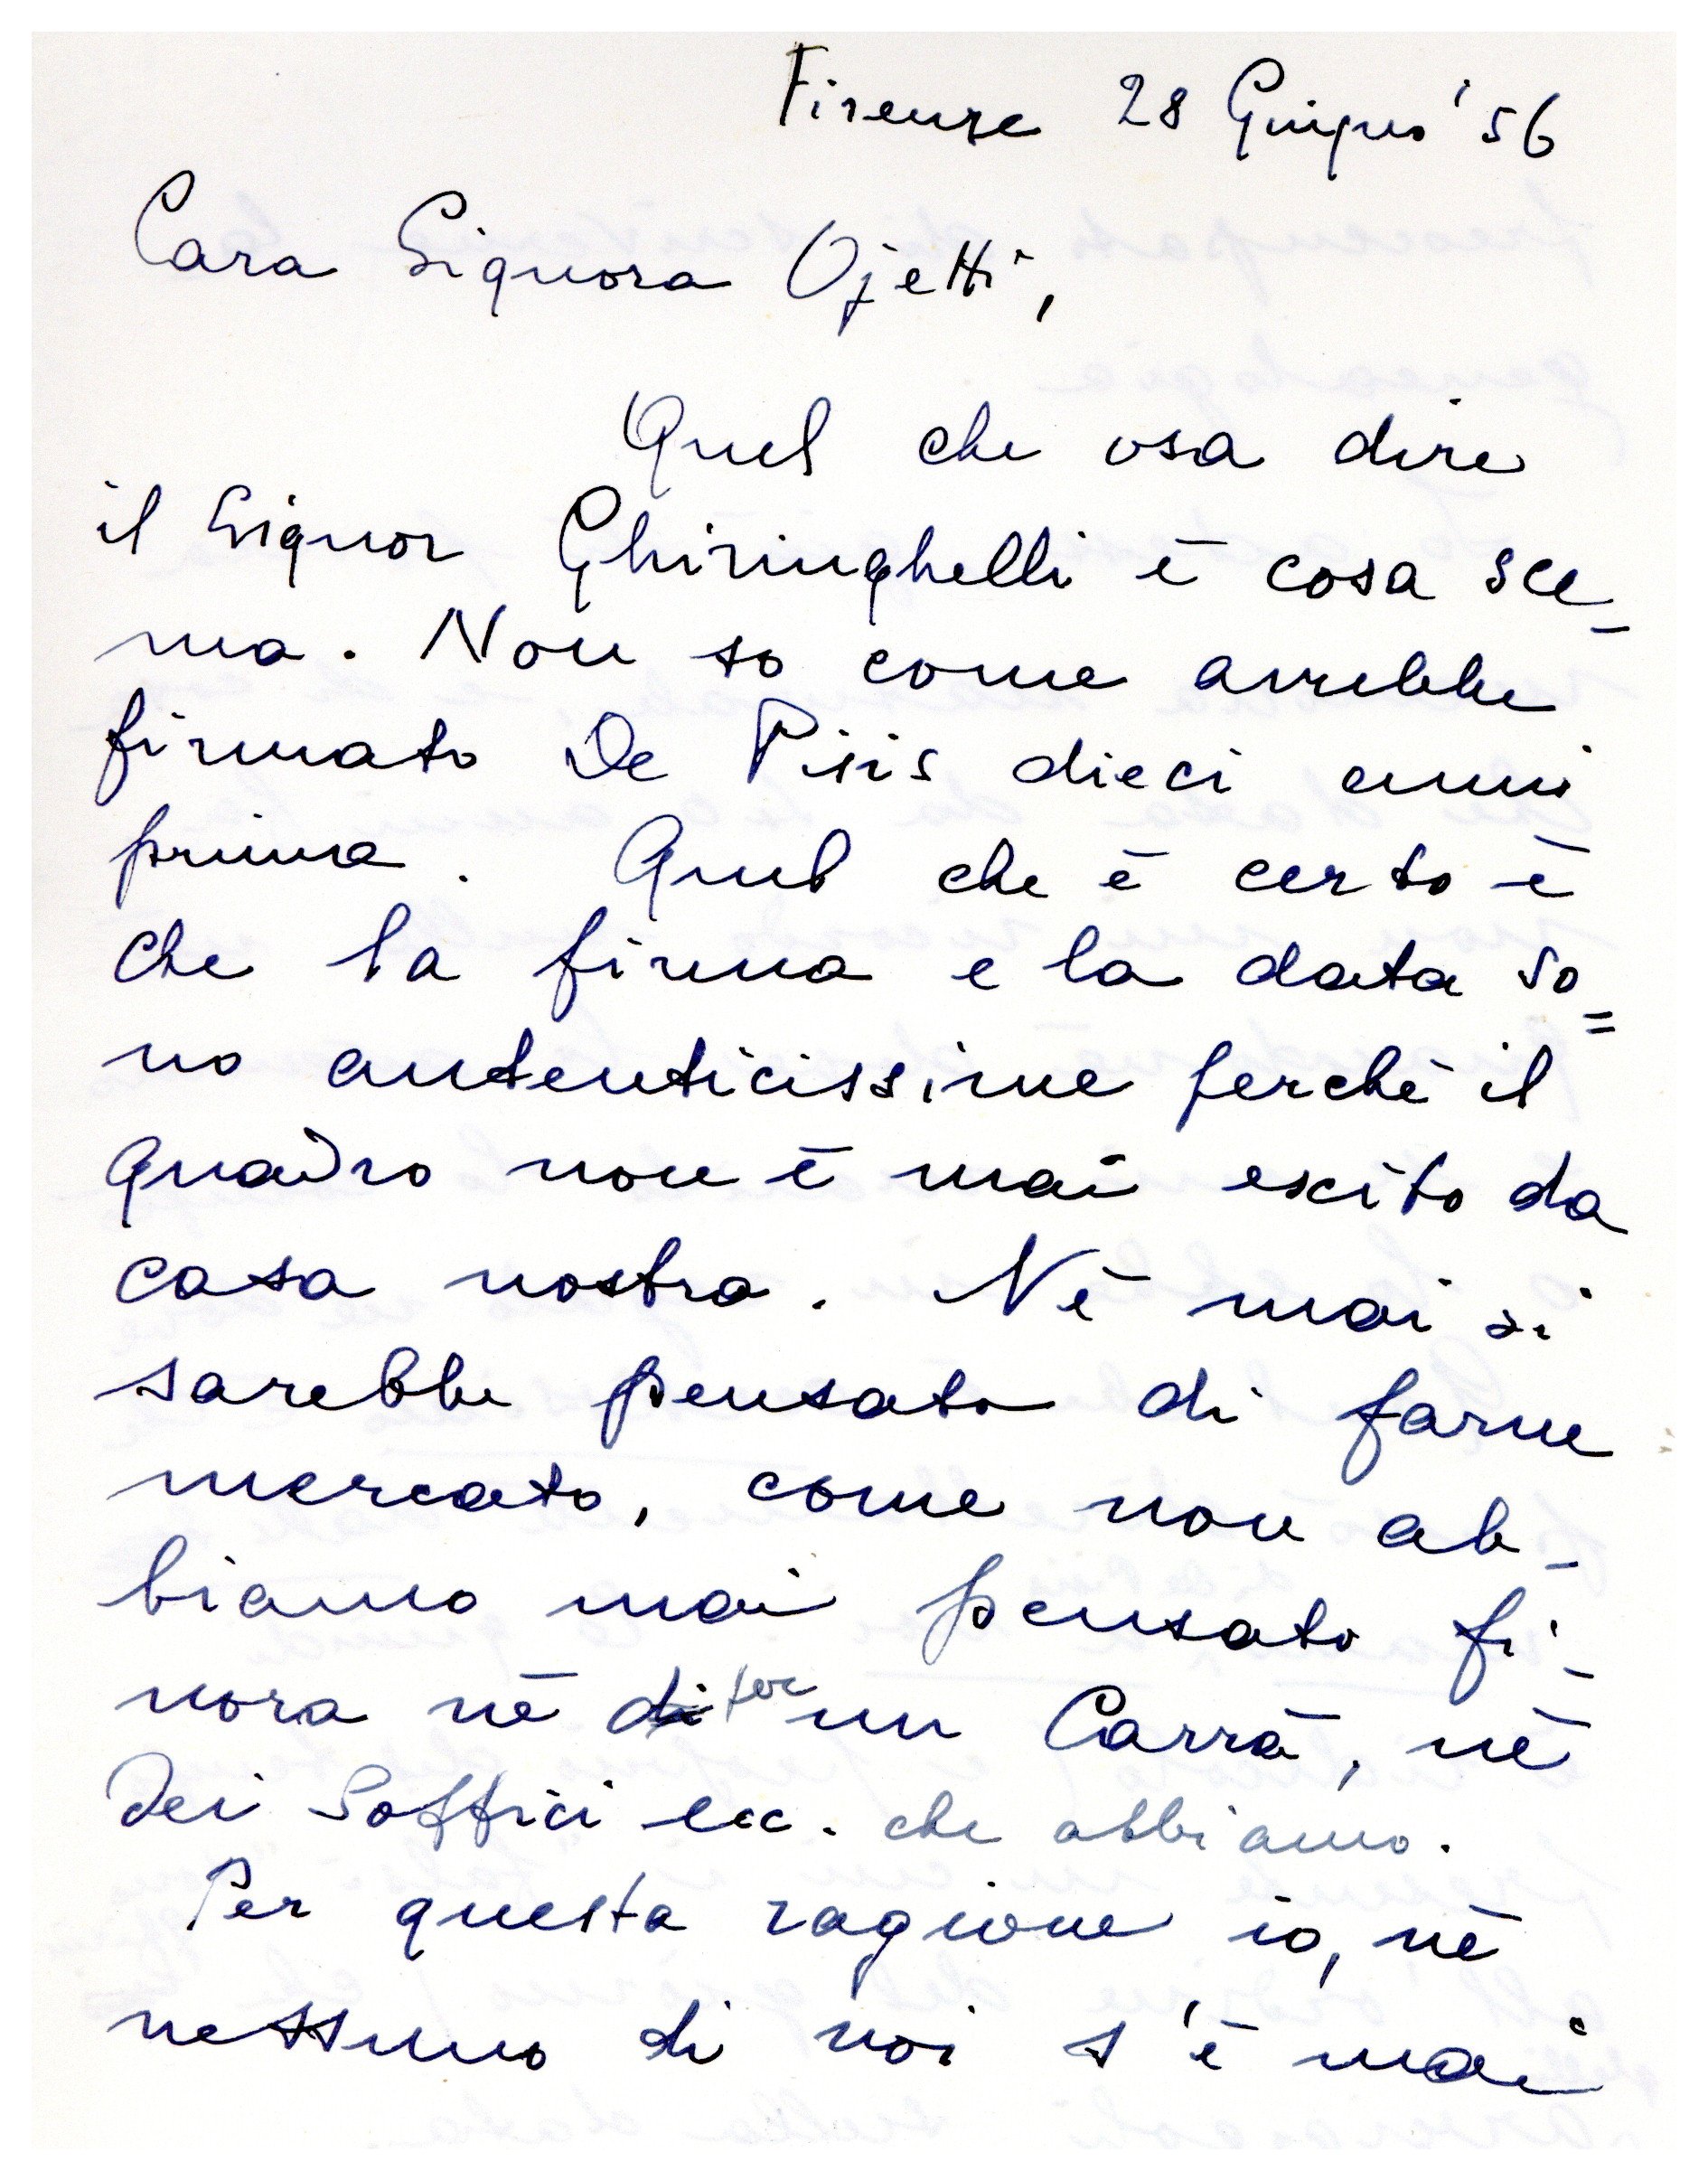 Firenze 28 Giugno '56
Cara Signora Ojetti,
Quel che osa dire
il Signor Ghiringhelli è cosa sce-
ma. Non so come avrebbe
firmato De Pisis dieci anni
prima. Quel che è certo è
che la firma e la data so=
no autenticissime perchè il
quadro non è mai escito da
casa nostra. Nè mai si
sarebbe pensato di farne
mercato, come non ab-
biamo mai pensato fi-
nora nè di per un Carrà, nè
dei Soffici ecc. che abbiamo.
Per questa ragione io, nè
nessuno di noi s'è mai